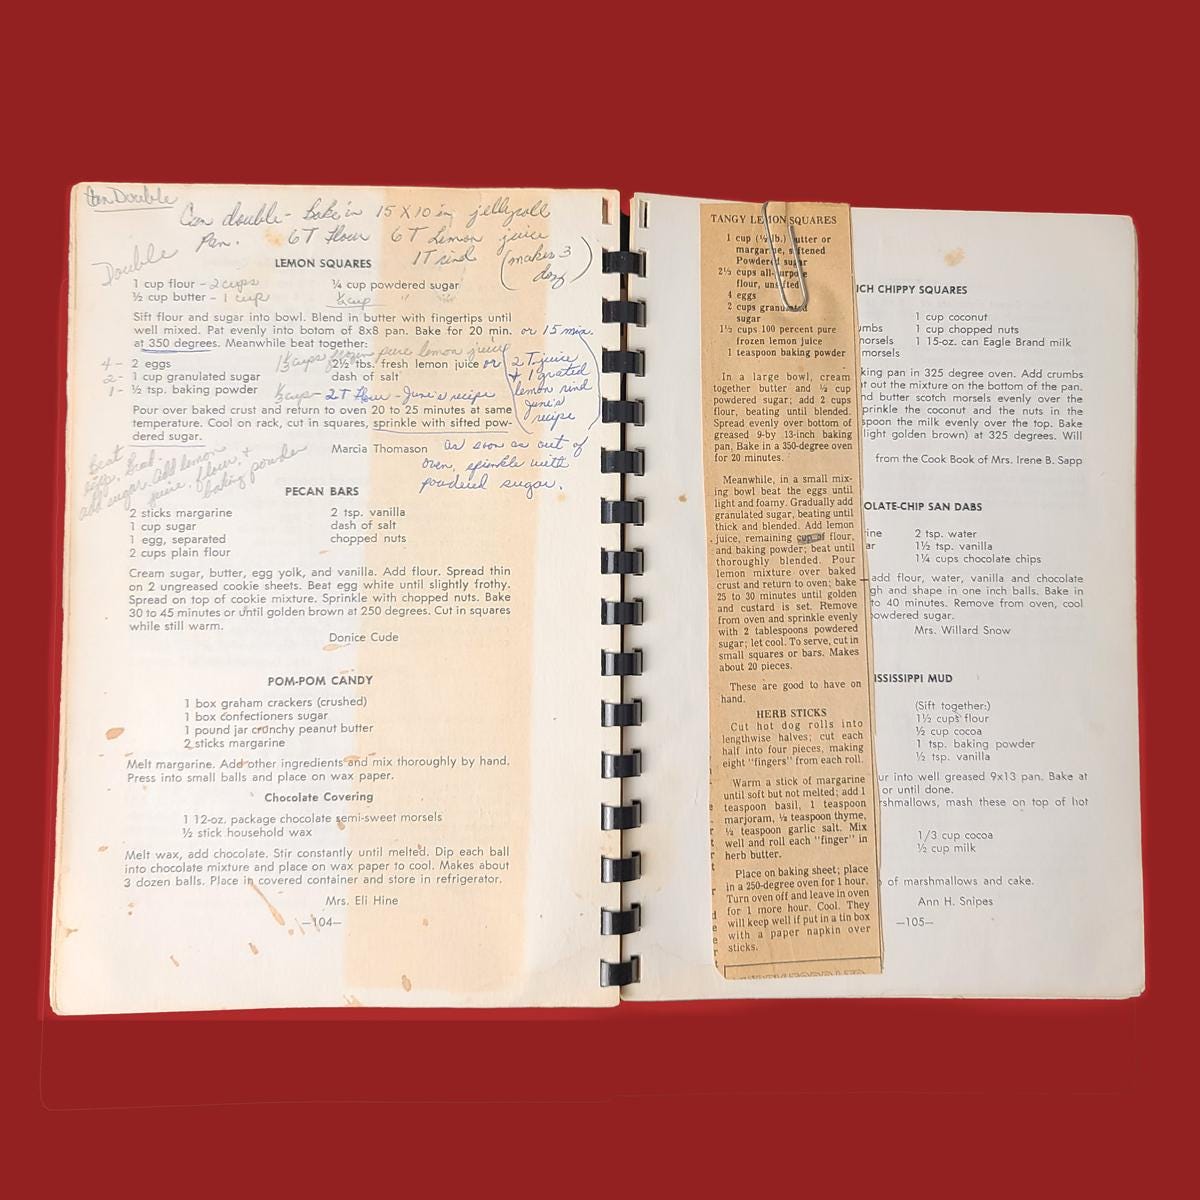 Can Double
Can double - bake in 15 X 10 in jellyroll
Pan. 6T flour 6T Lemon juice
1T rind (makes 3 doz)
Double
LEMON SQUARES
1 cup flour - 2 cups
½ cup butter - 1 cup
¼ cup powdered sugar
½ cup "
Sift flour and sugar into bowl. Blend in butter with fingertips until
well mixed. Pat evenly into botom of 8x8 pan. Bake for 20 min. or 15 min.
at 350 degrees. Meanwhile beat together:
cups frozen pure lemon juice
4 - 2 eggs
2 - 1 cup granulated sugar
1 - ½ tsp. baking powder
2½ tbs. fresh lemon juice or
dash of salt
cups - 2T flour - June's recipe
2 T juice
+ 1 grated
lemon rind
June's
recipe
Pour over baked crust and return to oven 20 to 25 minutes at same
temperature. Cool on rack, cut in squares, sprinkle with sifted pow-
dered sugar.
Marcia Thomason
as soon as out of
oven, sprinkle with
powdered sugar.
Beat
eggs, beat.
add sugar. Add lemon
juice, flour, +
baking powder
PECAN BARS
2 sticks margarine
1 cup sugar
1 egg, separated
2 cups plain flour
2 tsp. vanilla
dash of salt
chopped nuts
Cream sugar, butter, egg yolk, and vanilla. Add flour. Spread thin
on 2 ungreased cookie sheets. Beat egg white until slightly frothy.
Spread on top of cookie mixture. Sprinkle with chopped nuts. Bake
30 to 45 minutes or until golden brown at 250 degrees. Cut in squares
while still warm.
Donice Cude
POM-POM CANDY
1 box graham crackers (crushed)
1 box confectioners sugar
1 pound jar crunchy peanut butter
2 sticks margarine
Melt margarine. Add other ingredients and mix thoroughly by hand.
Press into small balls and place on wax paper.
Chocolate Covering
1 12-oz. package chocolate semi-sweet morsels
½ stick household wax
Melt wax, add chocolate. Stir constantly until melted. Dip each ball
into chocolate mixture and place on wax paper to cool. Makes about
3 dozen balls. Place in covered container and store in refrigerator.
Mrs. Eli Hine
—104—
TANGY LEMON SQUARES
1 cup (½ lb.) butter or
margarine, softened
Powdered sugar
2½ cups all-purpose
flour, unsifted
4 eggs
2 cups granulated
sugar
1½ cups 100 percent pure
frozen lemon juice
1 teaspoon baking powder
In a large bowl, cream
together butter and ½ cup
powdered sugar; add 2 cups
flour, beating until blended.
Spread evenly over bottom of
greased 9-by 13-inch baking
pan. Bake in a 350-degree oven
for 20 minutes.
Meanwhile, in a small mix-
ing bowl beat the eggs until
light and foamy. Gradually add
granulated sugar, beating until
thick and blended. Add lemon
juice, remaining cup of flour,
and baking powder; beat until
thoroughly blended. Pour
lemon mixture over baked
crust and return to oven; bake
25 to 30 minutes until golden
and custard is set. Remove
from oven and sprinkle evenly
with 2 tablespoons powdered
sugar; let cool. To serve, cut in
small squares or bars. Makes
about 20 pieces.
These are good to have on
hand.
HERB STICKS
Cut hot dog rolls into
lengthwise halves; cut each
half into four pieces, making
eight "fingers" from each roll.
Warm a stick of margarine
until soft but not melted; add 1
teaspoon basil, 1 teaspoon
marjoram, ½ teaspoon thyme,
½ teaspoon garlic salt. Mix
well and roll each "finger" in
herb butter.
Place on baking sheet; place
in a 250-degree oven for 1 hour.
Turn oven off and leave in oven
for 1 more hour. Cool. They
will keep well if put in a tin box
with a paper napkin over
sticks.
ICH CHIPPY SQUARES
umbs
norsels
morsels
1 cup coconut
1 cup chopped nuts
1 15-oz. can Eagle Brand milk
king pan in 325 degree oven. Add crumbs
t out the mixture on the bottom of the pan.
nd butter scotch morsels evenly over the
prinkle the coconut and the nuts in the
spoon the milk evenly over the top. Bake
light golden brown) at 325 degrees. Will
from the Cook Book of Mrs. Irene B. Sapp
OLATE-CHIP SAN DABS
rine
ar
2 tsp. water
1½ tsp. vanilla
1¼ cups chocolate chips
add flour, water, vanilla and chocolate
gh and shape in one inch balls. Bake in
to 40 minutes. Remove from oven, cool
powdered sugar.
Mrs. Willard Snow
ISSISSIPPI MUD
(Sift together:)
1½ cups flour
½ cup cocoa
1 tsp. baking powder
½ tsp. vanilla
ur into well greased 9x13 pan. Bake at
or until done.
rshmallows, mash these on top of hot
1/3 cup cocoa
½ cup milk
of marshmallows and cake.
Ann H. Snipes
—105—